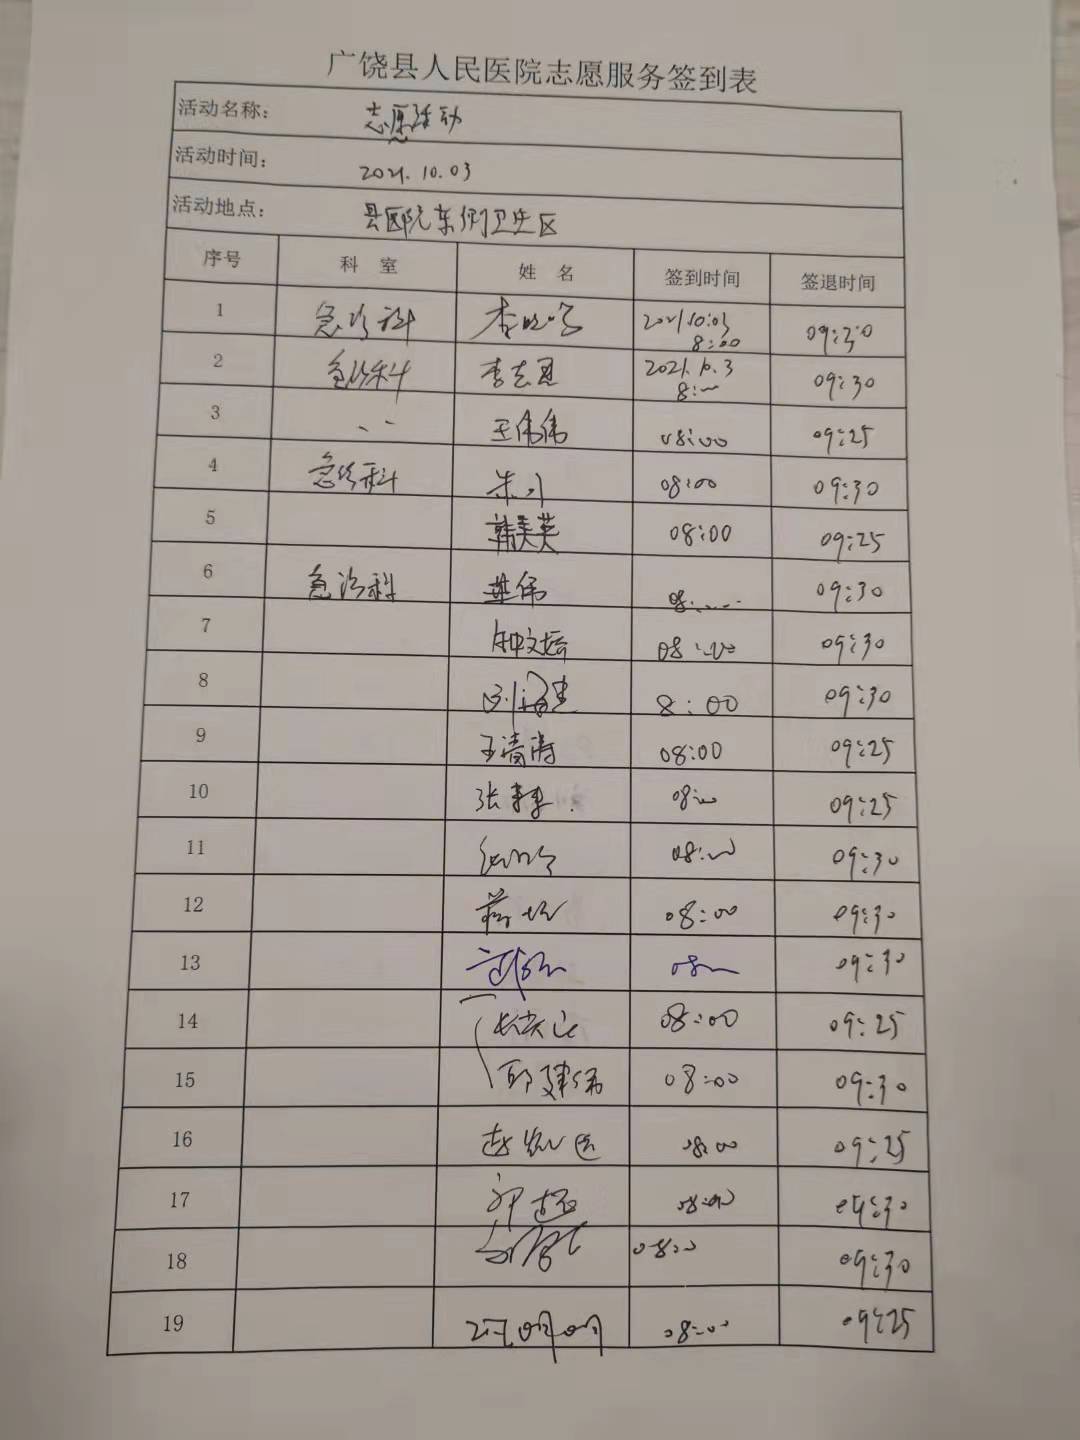 广饶县人民医院志愿服务签到表
活动名称： 志愿活动
活动时间： 2021.10.03
活动地点： 县医院东侧卫生区
序号 科 室 姓 名 签到时间 签退时间
1 急诊科 2021.10.03 8:00 09:30
2 急诊科 李志恩 2021.10.3 8:00 09:30
3 王伟伟 08:00 09:25
4 急诊科 08:00 09:30
5 韩美英 08:00 09:25
6 急诊科 08:00 09:30
7 08:00 09:30
8 8:00 09:30
9 王清涛 08:00 09:25
10 08:00 09:25
11 08:00 09:30
12 08:00 09:30
13 08:00 09:30
14 08:00 09:25
15 邱建伟 08:00 09:30
16 08:00 09:25
17 08:00 09:30
18 08:00 09:30
19 08:00 09:25